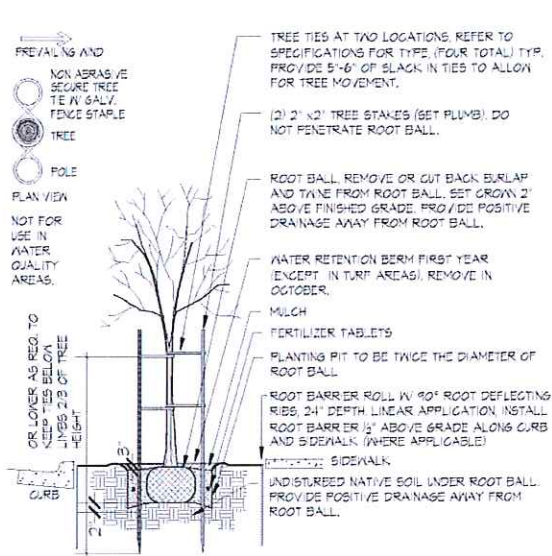 PREVAILING WIND
NON ABRASIVE
SECURE TREE
TIE W/ GALV.
FENCE STAPLE
TREE
POLE
PLAN VIEW
NOT FOR
USE IN
WATER
QUALITY
AREAS.
OR LOWER AS REQ. TO
KEEP TIES BELOW
LIMBS 2/3 OF TREE
HEIGHT
3"
CURB
2'
TREE TIES AT TWO LOCATIONS, REFER TO
SPECIFICATIONS FOR TYPE, (FOUR TOTAL) TYP.
PROVIDE 5"-6" OF SLACK IN TIES TO ALLOW
FOR TREE MOVEMENT.
(2) 2" x2" TREE STAKES (SET PLUMB), DO
NOT PENETRATE ROOT BALL.
ROOT BALL, REMOVE OR CUT BACK BURLAP
AND TWINE FROM ROOT BALL. SET CROWN 2"
ABOVE FINISHED GRADE. PROVIDE POSITIVE
DRAINAGE AWAY FROM ROOT BALL.
WATER RETENTION BERM FIRST YEAR
(EXCEPT IN TURF AREAS), REMOVE IN
OCTOBER.
MULCH
FERTILIZER TABLETS
PLANTING PIT TO BE TWICE THE DIAMETER OF
ROOT BALL
ROOT BARRIER ROLL W/ 90° ROOT DEFLECTING
RIBS, 24" DEPTH, LINEAR APPLICATION, INSTALL
ROOT BARRIER ½" ABOVE GRADE ALONG CURB
AND SIDEWALK (WHERE APPLICABLE)
SIDEWALK
UNDISTURBED NATIVE SOIL UNDER ROOT BALL.
PROVIDE POSITIVE DRAINAGE AWAY FROM
ROOT BALL.